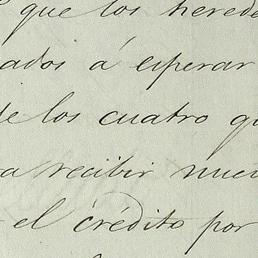 que los hered
ados á esperar
de los cuatro qu
a recibir nue
el crédito por